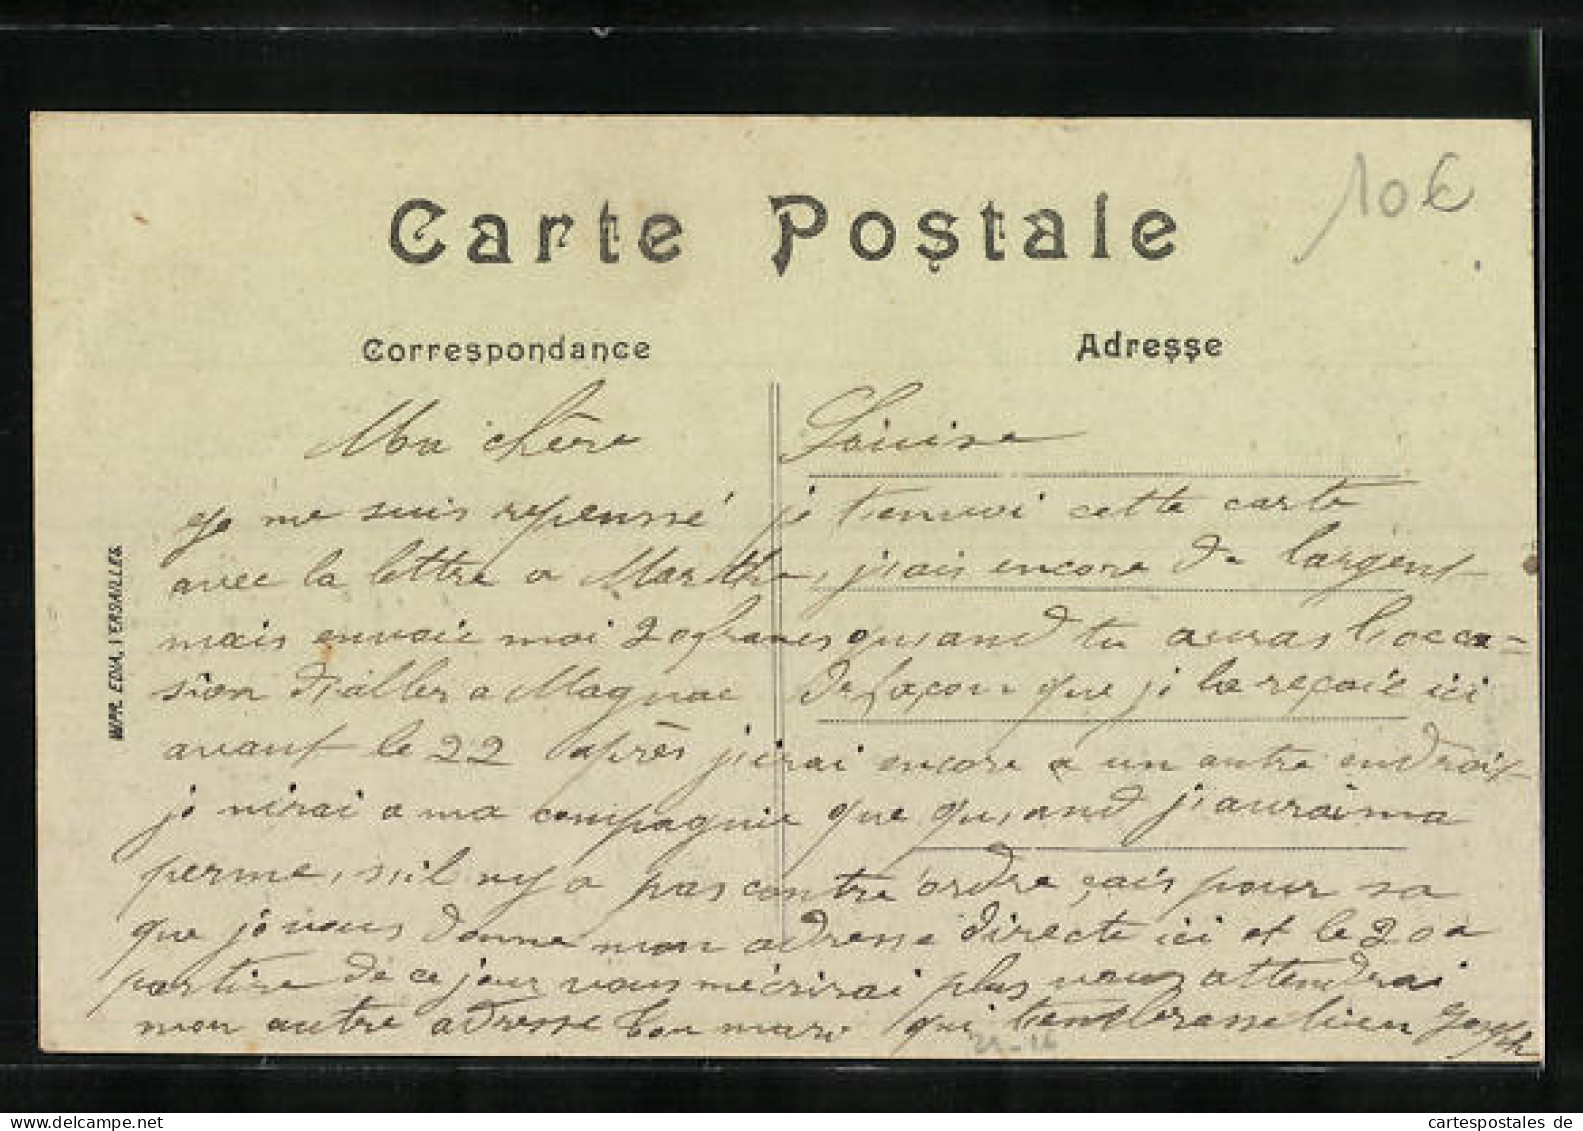 10€
Carte Postale
Correspondance
Adresse
Ma chère Louise
je me suis repenssé je t'envoi cette carte
avec la lettre a Marthe, j'ais encore de l'argent
mais envoie moi 20 francs quiand tu auras l'occa=
sion d'aller a Magnac de façon que je le reçoie ici
avant le 22 après j'irai encore a un autre endroit
je nirai a ma compagnie que quiand j'aurai ma
perme, s'il ny a pas contre ordre, çais pour sa
que je vous donne mon adresse directe ici et le 20 a
partire de ce jour vous mécrirai plus vous attendrai
mon autre adresse ton mari qui t'embrasse bien Joseph
IMP. EDIA, VERSAILLES
cartespostales de